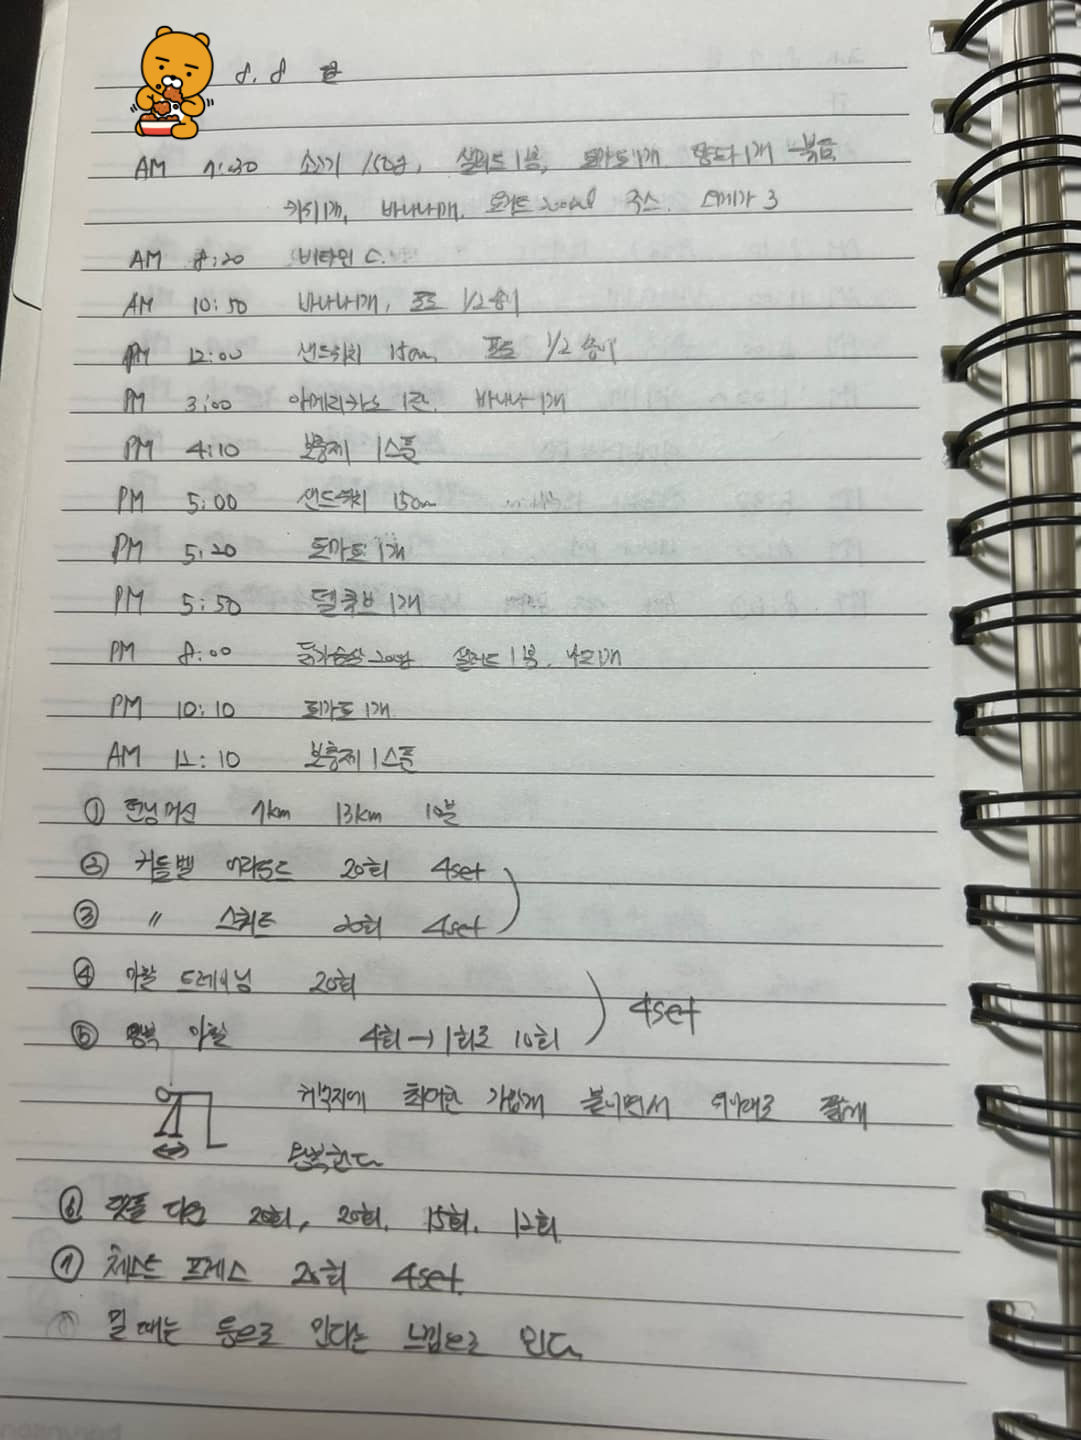 8. 8
AM 7:30 소고기 150g, 샐러드 1봉, 토마토 1개 양파 1개 볶음
키위 1개, 바나나 1개, 요거트 200ml 주스. 오메가 3
AM 8:20 비타민 C.
AM 10:50 바나나 1개, 포도 1/2 송이
PM 12:00 샌드위치 15cm, 포도 1/2 송이
PM 3:00 아메리카노 1잔. 바나나 1개
PM 4:10 보충제 1스푼
PM 5:00 샌드위치 15cm
PM 5:20 토마토 1개
PM 5:50 텔큐브 1개
PM 8:00 닭가슴살 200g 샐러드 1봉.
PM 10:10 토마토 1개
AM 11:10 보충제 1스푼
① 런닝머신 7km 13km 10분
② 커틀벨 20회 4set
③ 〃 스쿼트 20회 4set
④ 이완 트레이닝 20회
4set
⑤ 이완 4회 → 1회로 10회
최대한 가깝게 붙이면서 짧게
반복한다
⑥ 랫풀 다운 20회, 20회, 15회, 12회
⑦ 체스트 프레스 20회 4set
밀 때는 등으로 민다는 느낌으로 민다.